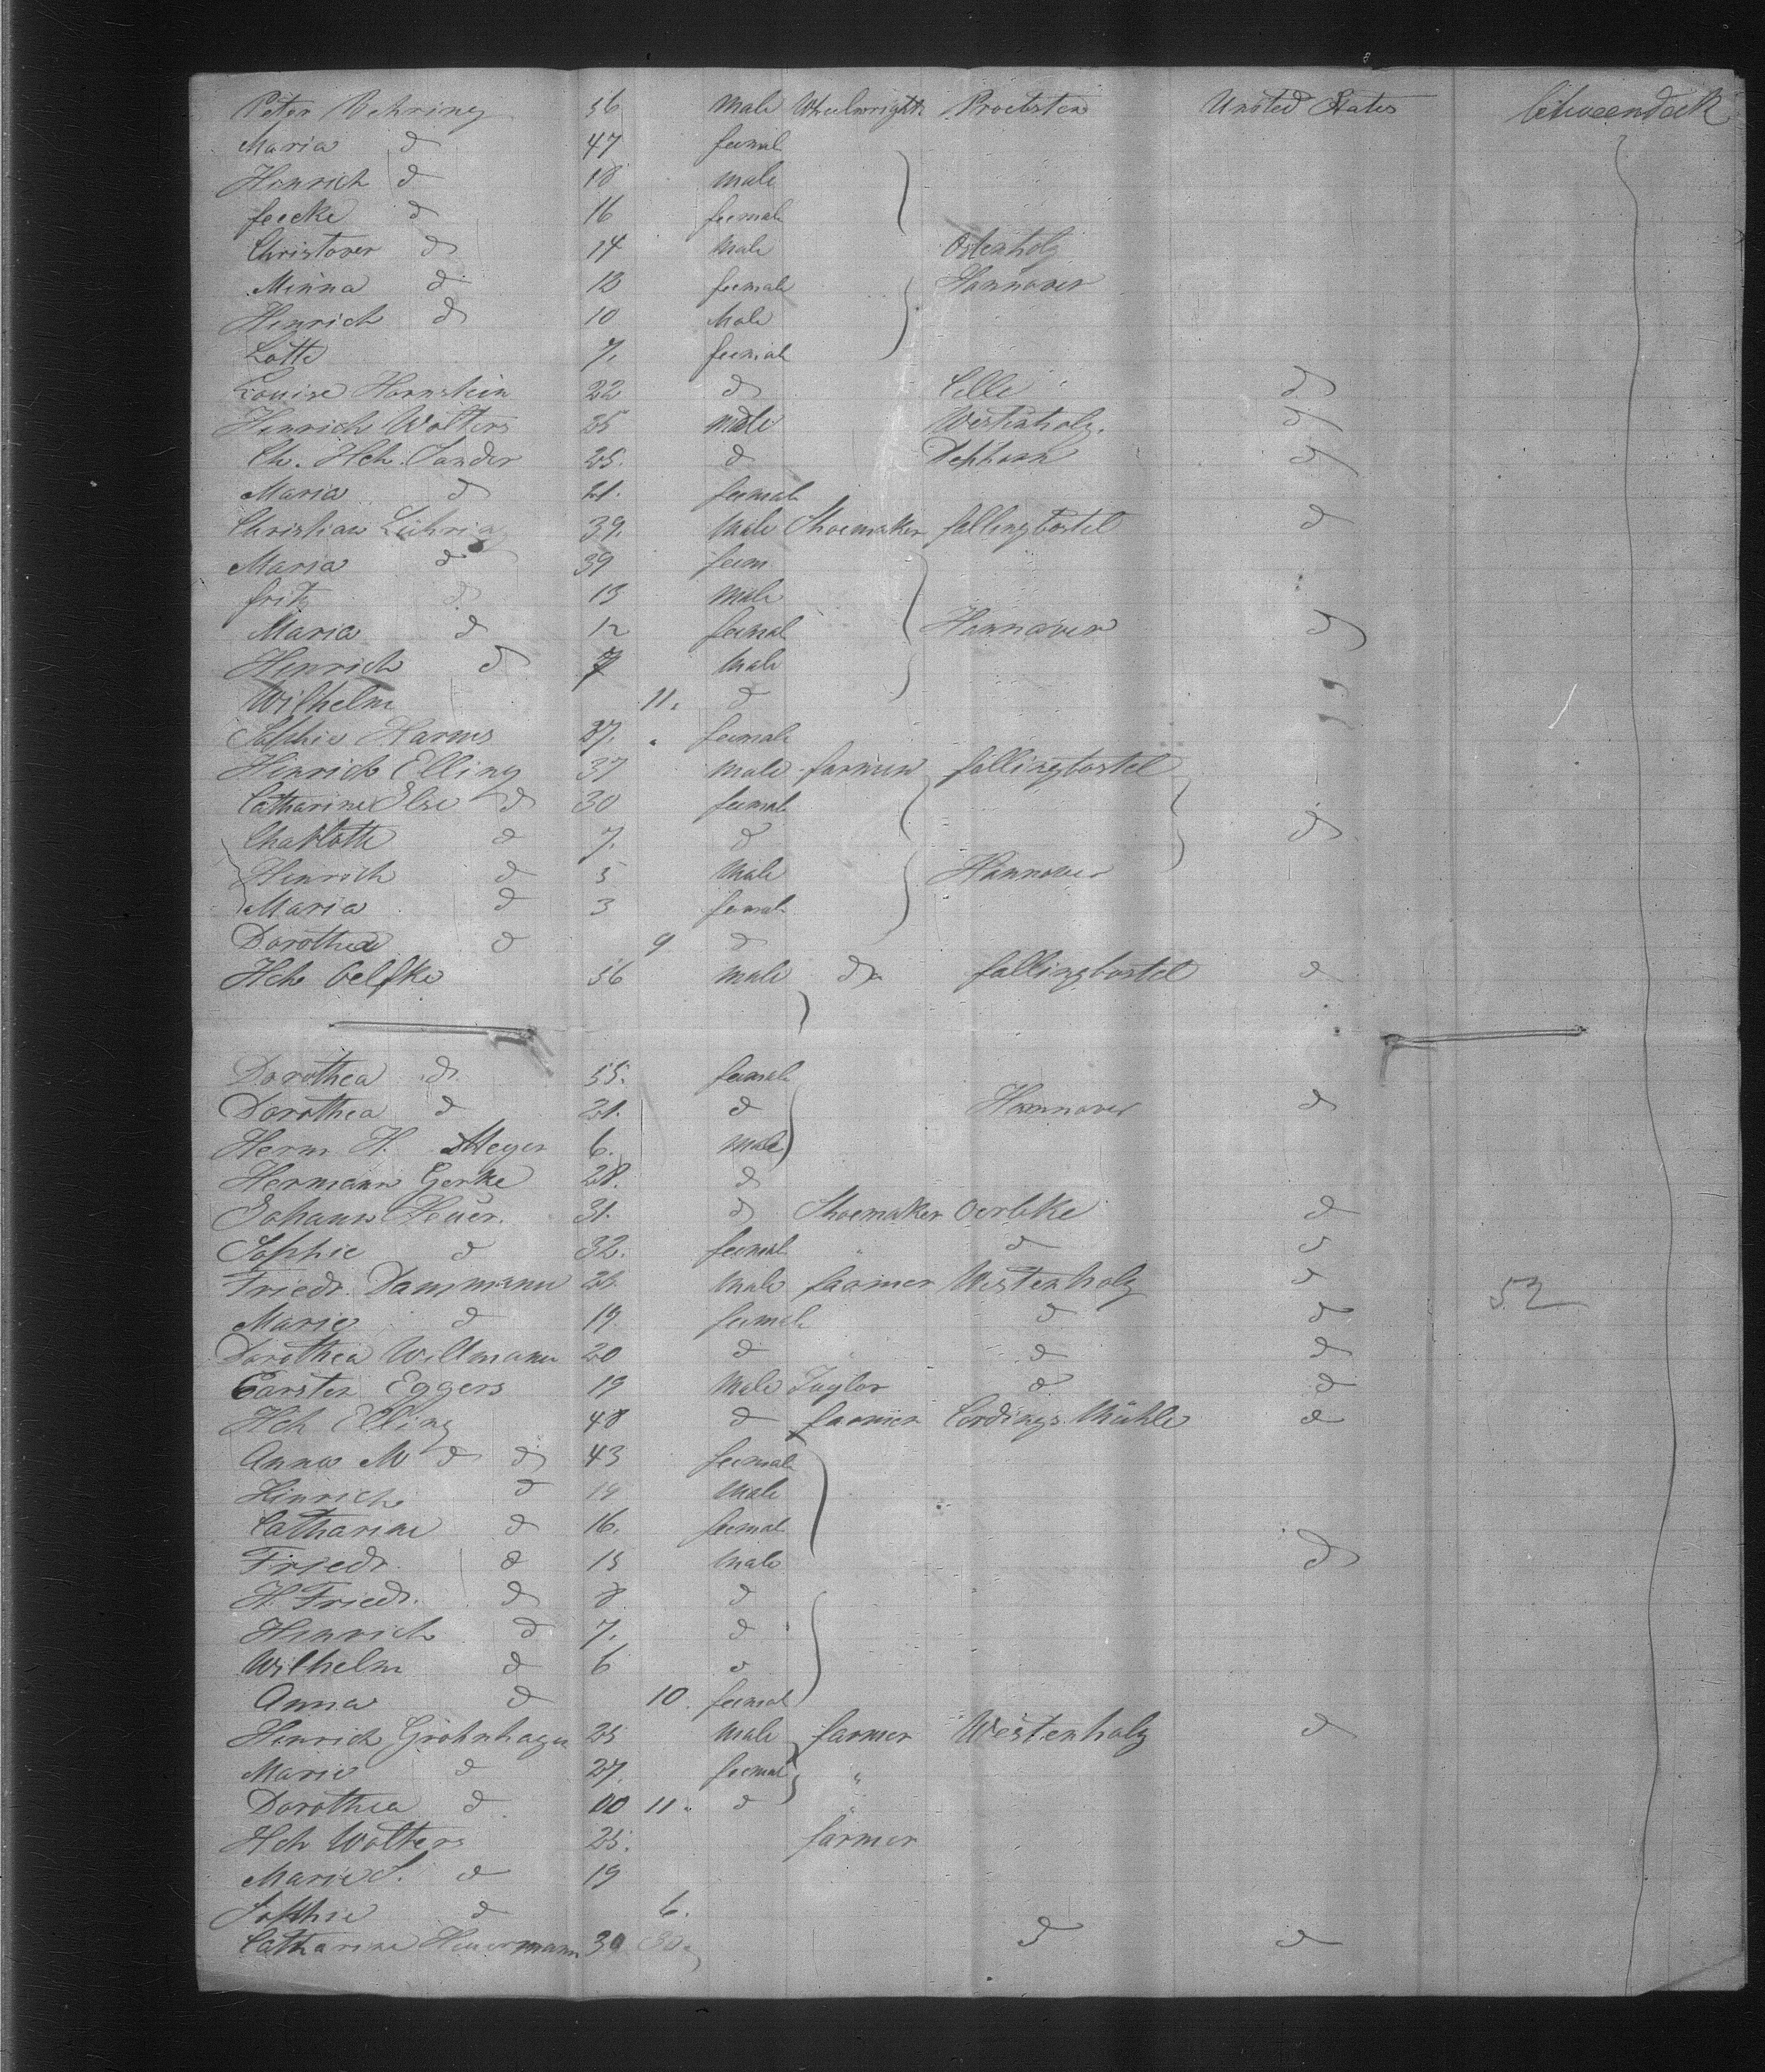 Peter Behring 56 Male Wheelwright Proebsten United States betweendeck
Maria d 47 feemale
Hinrich d 18 male
feecke d 16 feemale
Christover d 14 Male Ostenholz
Minna d 12 feemale Hannover
Henrich d 10 Male
Lotte 7. feemale
Louise Hornstein 22 d Celle d
Henrich Wolters 25 male Westenholz. d
Ch. Hch. Sander 25. d d
Maria d 21. feemale
Christian Lühring 39. Male Shoemaker fallingbostel d
Maria d 39 feem.
fritz d 13 Male
Maria d 12 feemal Hannover d
Henrich d 7 Male
Wilhelm 11. d
Sophie Harms 37. feemale
Hinrich Elling 37 Male farmer fallingbostel
Catharine Else d 30 feemale d
Charlotte d 7. d
Henrich d 5 Male Hannover
Maria d 3 femal
Dorothea d 9 d
Hch Oelfke 56 Male do fallingbostel d
Dorothea d. 55. feemale
Dorothea d 21. d Hannover d
Herm H. Meyer 6. Male
Hermann Gerke 28. d
Johann Heuer. 31. d Shoemaker Oerbke d
Sophie d 32. feemal " d d
Friedr. Dammann 26 Male farmer Westenholz d 52
Marie d 19. feemale d d
Dorothea Willmann 20 d d d
Carsten Eggers 19 Male Taylor d d
Hch Elling 48 d farmer Cordings Mühle d
Anna M d d 43 feemale
Hinrich d 19 Male
Catharine d 16. feemal
Friedr. d 13 Male d
H. Friedr. d 8 d
Henrich d 7. d
Wilhelm d 6 d
Anna d 10. feemal
Henrich Grohnhagen 25 Male farmer Westenholz d
Marie d 27. feemal "
Dorothea d 11. d
Hch Wolters 25. farmer
Marie S. d 19
Sophie d 6.
Catharine Heuermann 30 d d